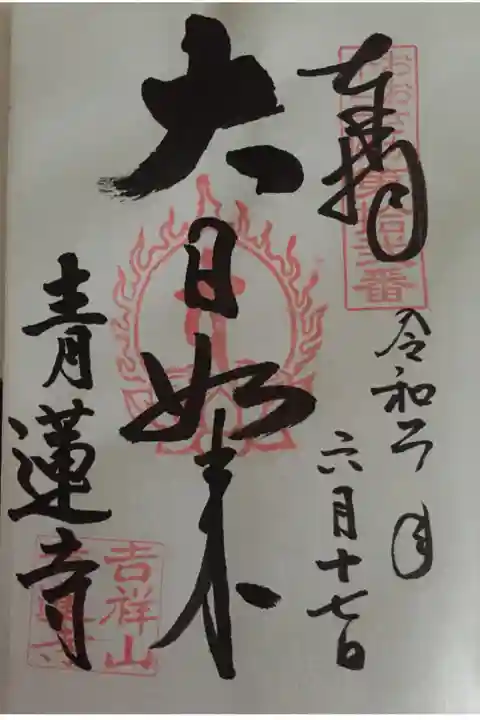 奉拝
令和二年
六月十七日
大日如来
青蓮寺
吉祥山
青蓮寺